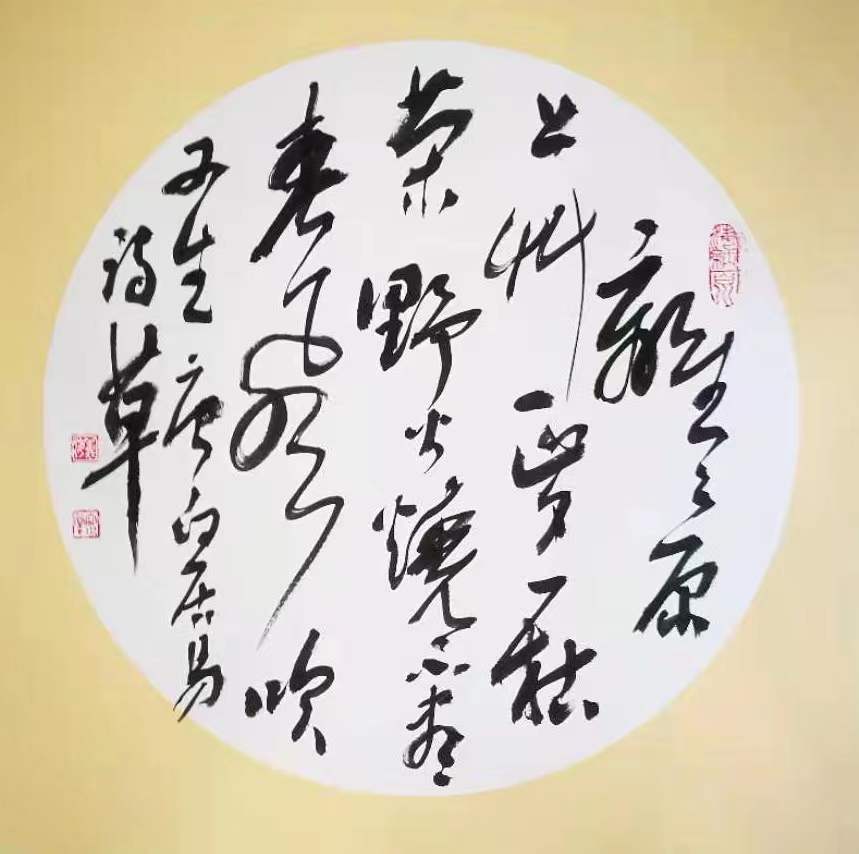 離々原
上艸一歲一枯
榮野火燒不盡
春風吹
又生 唐白居易
詩草